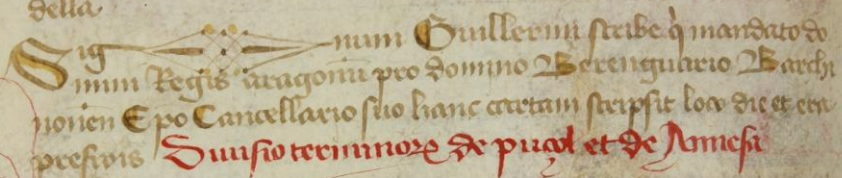 della
Sig num Guillermi scribe q̓ mandato do
mini Regis aragonū pro domino Berenguario Barchi
nonen Epo Cancellario suo hanc cartam scripsit loco die et era
prefixis Diuisio terminorꝝ de puçol et de